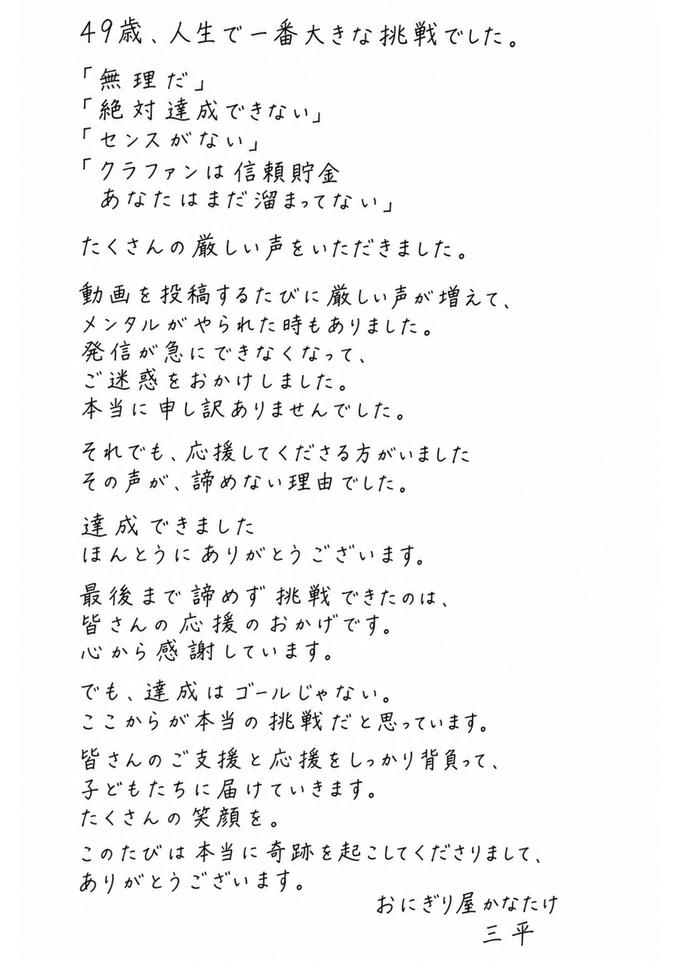 49歳、人生で一番大きな挑戦でした。
「無理だ」
「絶対達成できない」
「センスがない」
「クラファンは信頼貯金
あなたはまだ溜まってない」
たくさんの厳しい声をいただきました。
動画を投稿するたびに厳しい声が増えて、
メンタルがやられた時もありました。
発信が急にできなくなって、
ご迷惑をおかけしました。
本当に申し訳ありませんでした。
それでも、応援してくださる方がいました
その声が、諦めない理由でした。
達成できました
ほんとうにありがとうございます。
最後まで諦めず挑戦できたのは、
皆さんの応援のおかげです。
心から感謝しています。
でも、達成はゴールじゃない。
ここからが本当の挑戦だと思っています。
皆さんのご支援と応援をしっかり背負って、
子どもたちに届けていきます。
たくさんの笑顔を。
このたびは本当に奇跡を起こしてくださりまして、
ありがとうございます。
おにぎり屋かなたけ
三平